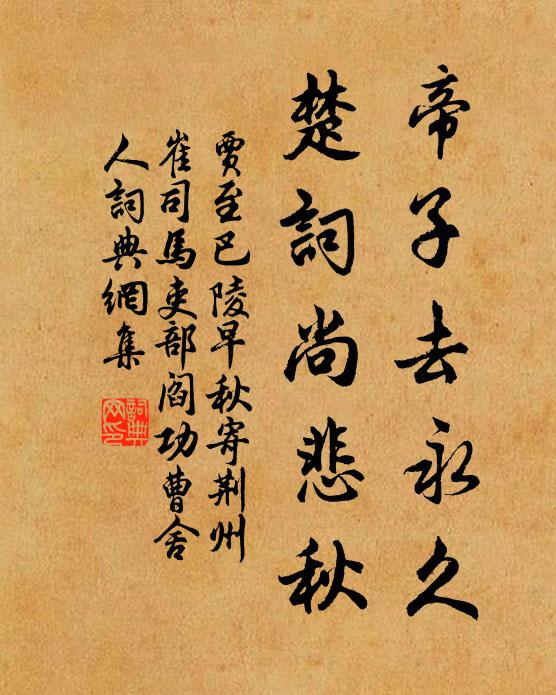 帝子去永久
楚詞尚悲秋
賈至巴陵早秋寄荆州
崔司馬吏部閻功曹舍
人詞典網集
詞典網印